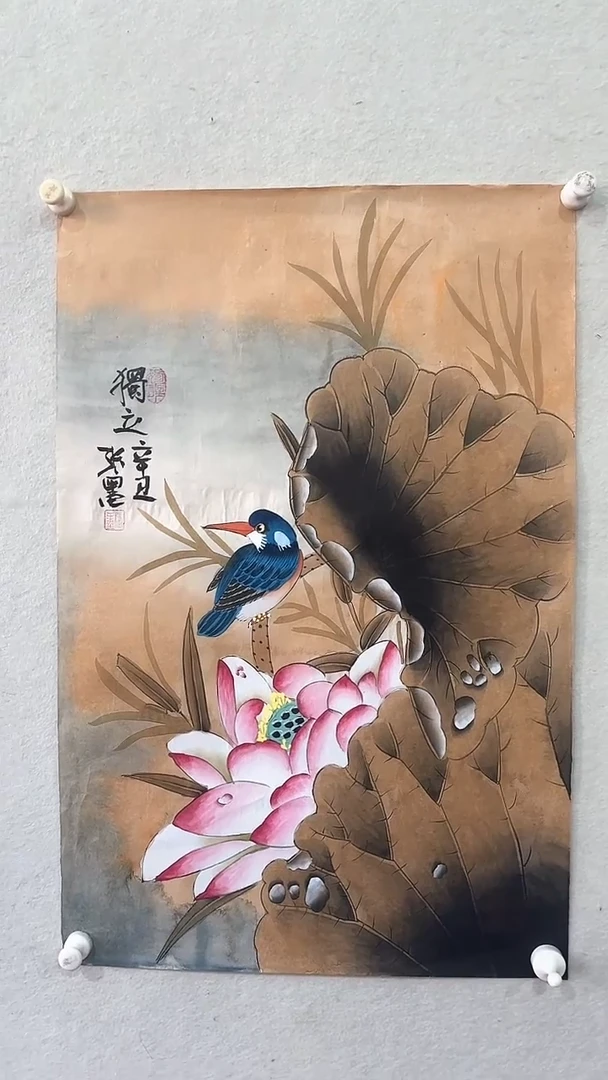 獨立
辛丑
张墨